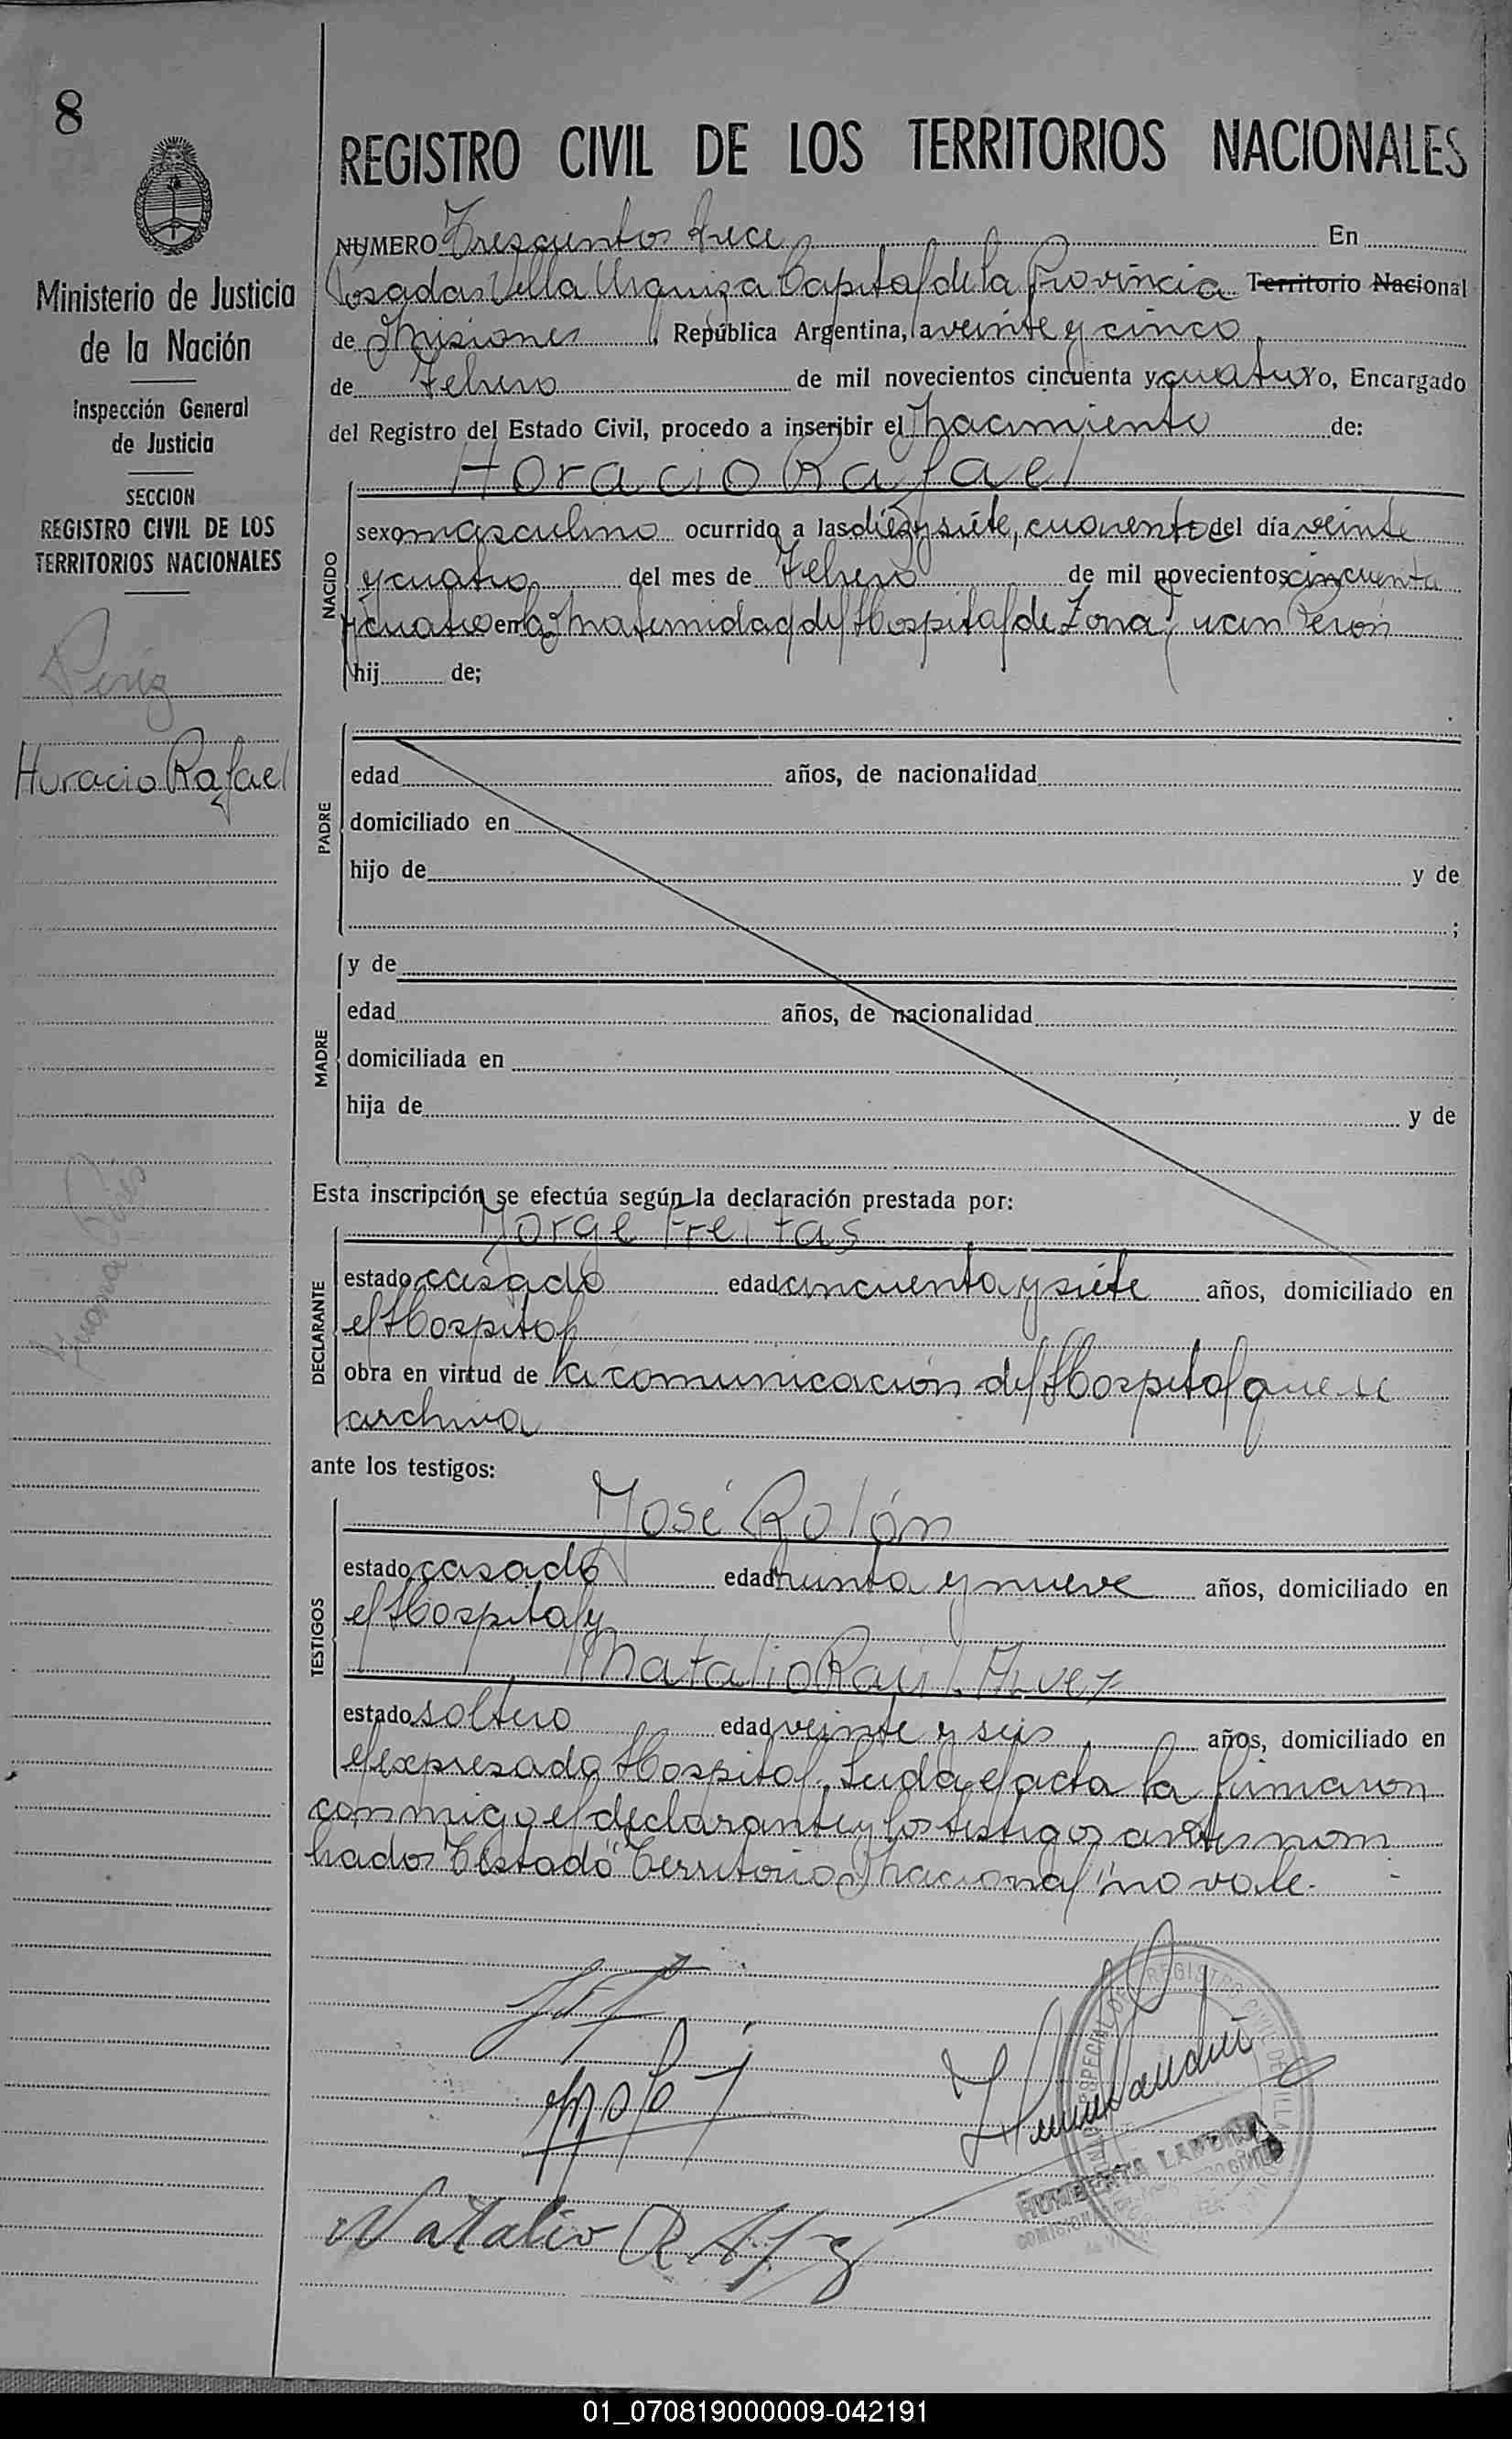 8
Ministerio de Justicia
de la Nación
Inspección General
de Justicia
SECCION
REGISTRO CIVIL DE LOS
TERRITORIOS NACIONALES
Horacio Rafael
REGISTRO CIVIL DE LOS TERRITORIOS NACIONALES
NUMERO Trescientos trece En
Posadas Villa Urquiza Capital de la Provincia Territorio Nacional
de Misiones, República Argentina, a veinte y cinco
de Febrero de mil novecientos cincuenta y cuatro yo, Encargado
del Registro del Estado Civil, procedo a inscribir el nacimiento de:
Horacio Rafael
NACIDO
sexo masculino ocurrido a las diez y siete, cuarenta del día veinte
y cuatro del mes de Febrero de mil novecientos cincuenta
y cuatro en la Maternidad del Hospital de Zona Juan Perón
hij de;
PADRE
edad años, de nacionalidad
domiciliado en
hijo de y de
;
y de
MADRE
edad años, de nacionalidad
domiciliada en
hija de y de
Esta inscripción se efectúa según la declaración prestada por:
Jorge Freitas
DECLARANTE
estado casado edad cincuenta y siete años, domiciliado en
el Hospital
obra en virtud de la comunicación del Hospital que se
archiva
ante los testigos:
José Rolón
TESTIGOS
estado casado edad treinta y nueve años, domiciliado en
el Hospital y
Natalio Raúl Alvez
estado soltero edad veinte y seis años, domiciliado en
el expresado Hospital. Leída el acta la firmaron
conmigo el declarante y los testigos antes nom
brados Testado "Territorio Nacional" no vale.
Natalio R
HUMBERTA LANDINI
01_070819000009-042191